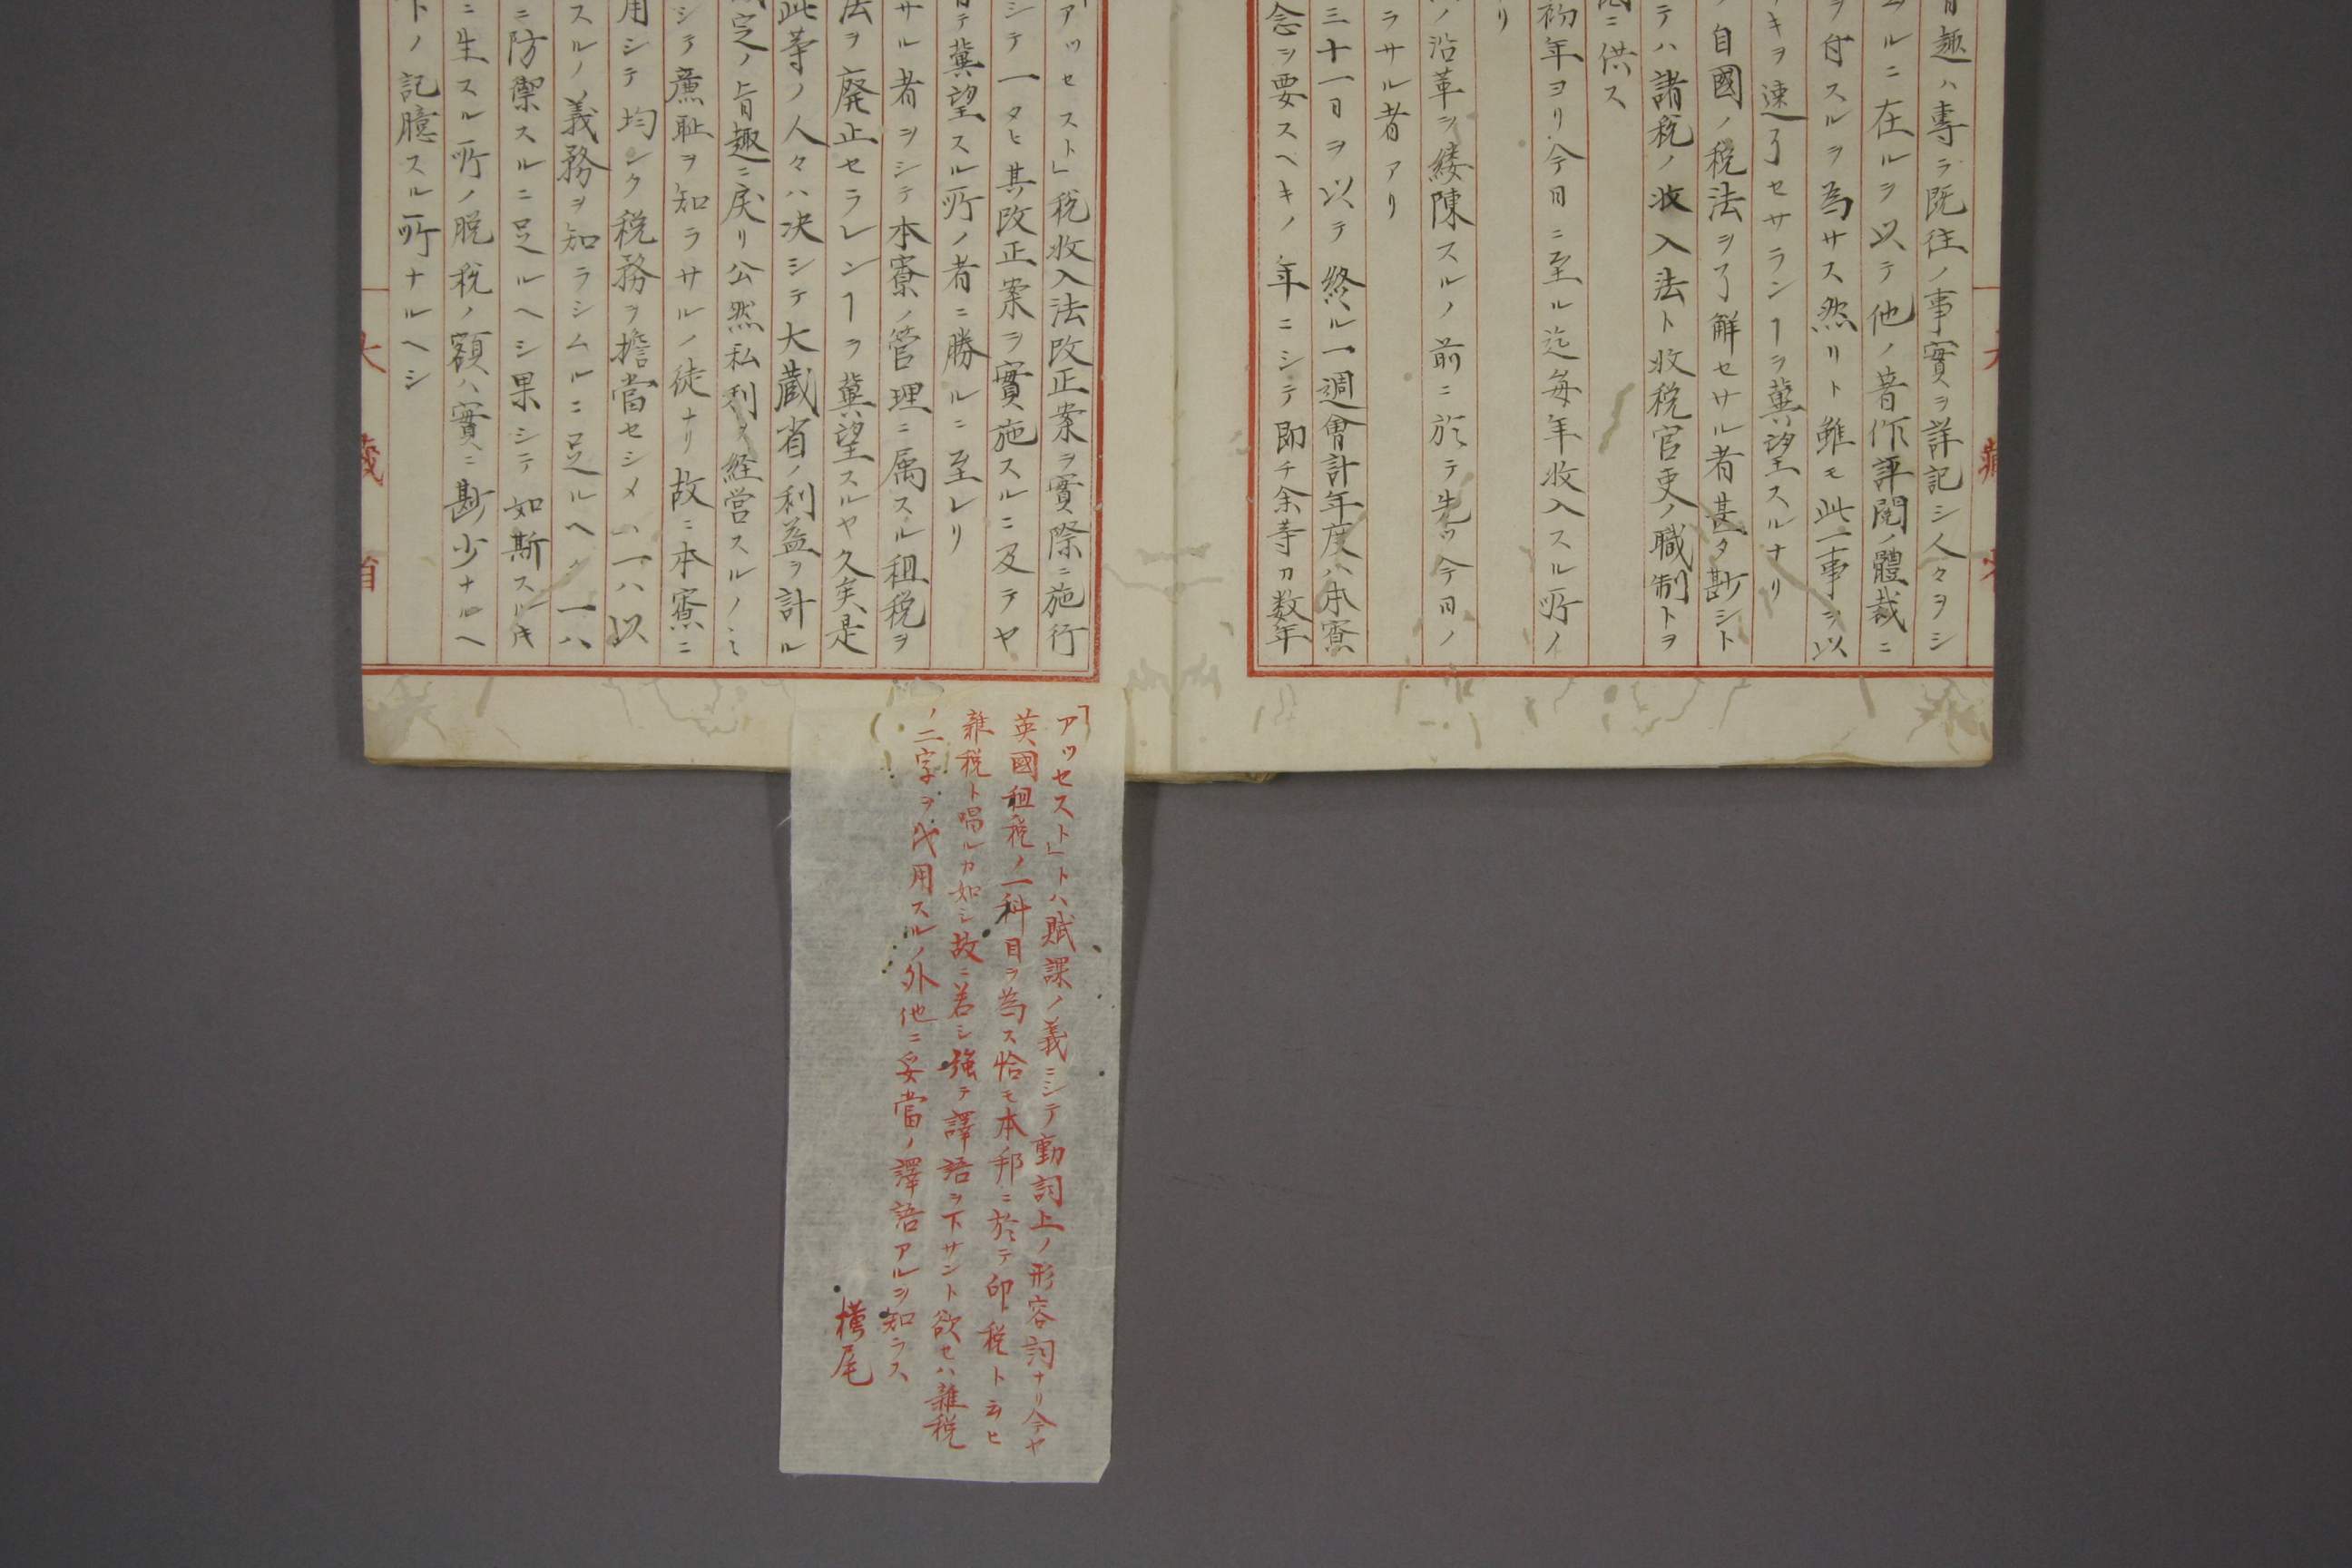 旨趣ハ專ラ既往ノ事實ヲ詳記シ人々ヲシ
ルニ在ルヲ以テ他ノ著作評閲ノ體裁ニ
ヲ付スルヲ為サス然リト雖モ此一事ヲ以
キヲ速了セサランヿヲ冀望スルナリ
自國ノ税法ヲ了解セサル者甚タ尠シト
テハ諸税ノ收入法ト收税官吏ノ職制トヲ
ニ供ス
初年ヨリ今日ニ至ル迄毎年收入スル所ノ
リ
ノ沿革ヲ縷陳スルノ前ニ於テ先ツ今日ノ
ラサル者アリ
三十一日ヲ以テ終ル一週會計年度ハ本寮
念ヲ要スヘキノ年ニシテ即チ余等カ数年
「アッセスト」税收入法改正案ヲ實際ニ施行
シテ一タヒ其改正案ヲ實施スルニ及テヤ
テ冀望スル所ノ者ニ勝ルニ至レリ
サル者ヲシテ本寮ノ管理ニ属スル租税ヲ
法ヲ廃止セラレンヿヲ冀望スルヤ久矣是
此等ノ人々ハ决シテ大蔵省ノ利益ヲ計ル
定ノ旨趣ニ戻リ公然私利ヲ経営スルノミ
シテ廉耻ヲ知ラサルノ徒ナリ故ニ本寮ニ
用シテ均シク税務ヲ擔當セシメハ一ハ以
スルノ義務ヲ知ラシムルニ足ルヘク一ハ
ニ防禦スルニ足ルヘシ果シテ如斯スルキ
ニ生スル所ノ脱税ノ額ハ實ニ尠少ナルヘ
下ノ記臆スル所ナルヘシ
大藏省
大藏省
「アッセスト」トハ賦課ノ義ニシテ動詞上ノ形容詞ナリ今ヤ
英國租税ノ一科目ヲ為ス恰モ本邦ニ於テ印税ト云ヒ
雜税ト唱ルカ如シ故ニ若シ強テ譯語ヲ下サント欲セハ雜税
ノ二字ヲ代用スルノ外他ニ妥當ノ譯語アルヲ知ラス
横尾